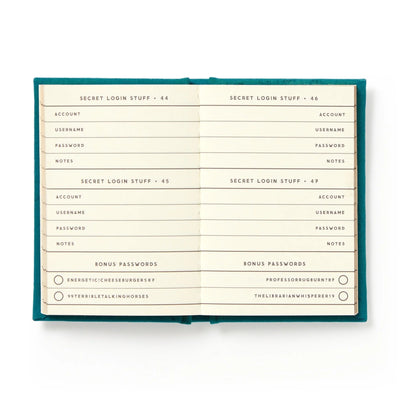 SECRET LOGIN STUFF • 44
ACCOUNT
USERNAME
PASSWORD
NOTES
SECRET LOGIN STUFF • 45
ACCOUNT
USERNAME
PASSWORD
NOTES
BONUS PASSWORDS
99TERRIBLETALKINGHORSES
SECRET LOGIN STUFF • 46
ACCOUNT
USERNAME
PASSWORD
NOTES
SECRET LOGIN STUFF • 47
ACCOUNT
USERNAME
PASSWORD
NOTES
BONUS PASSWORDS
THELIBRARIANWHISPERER19